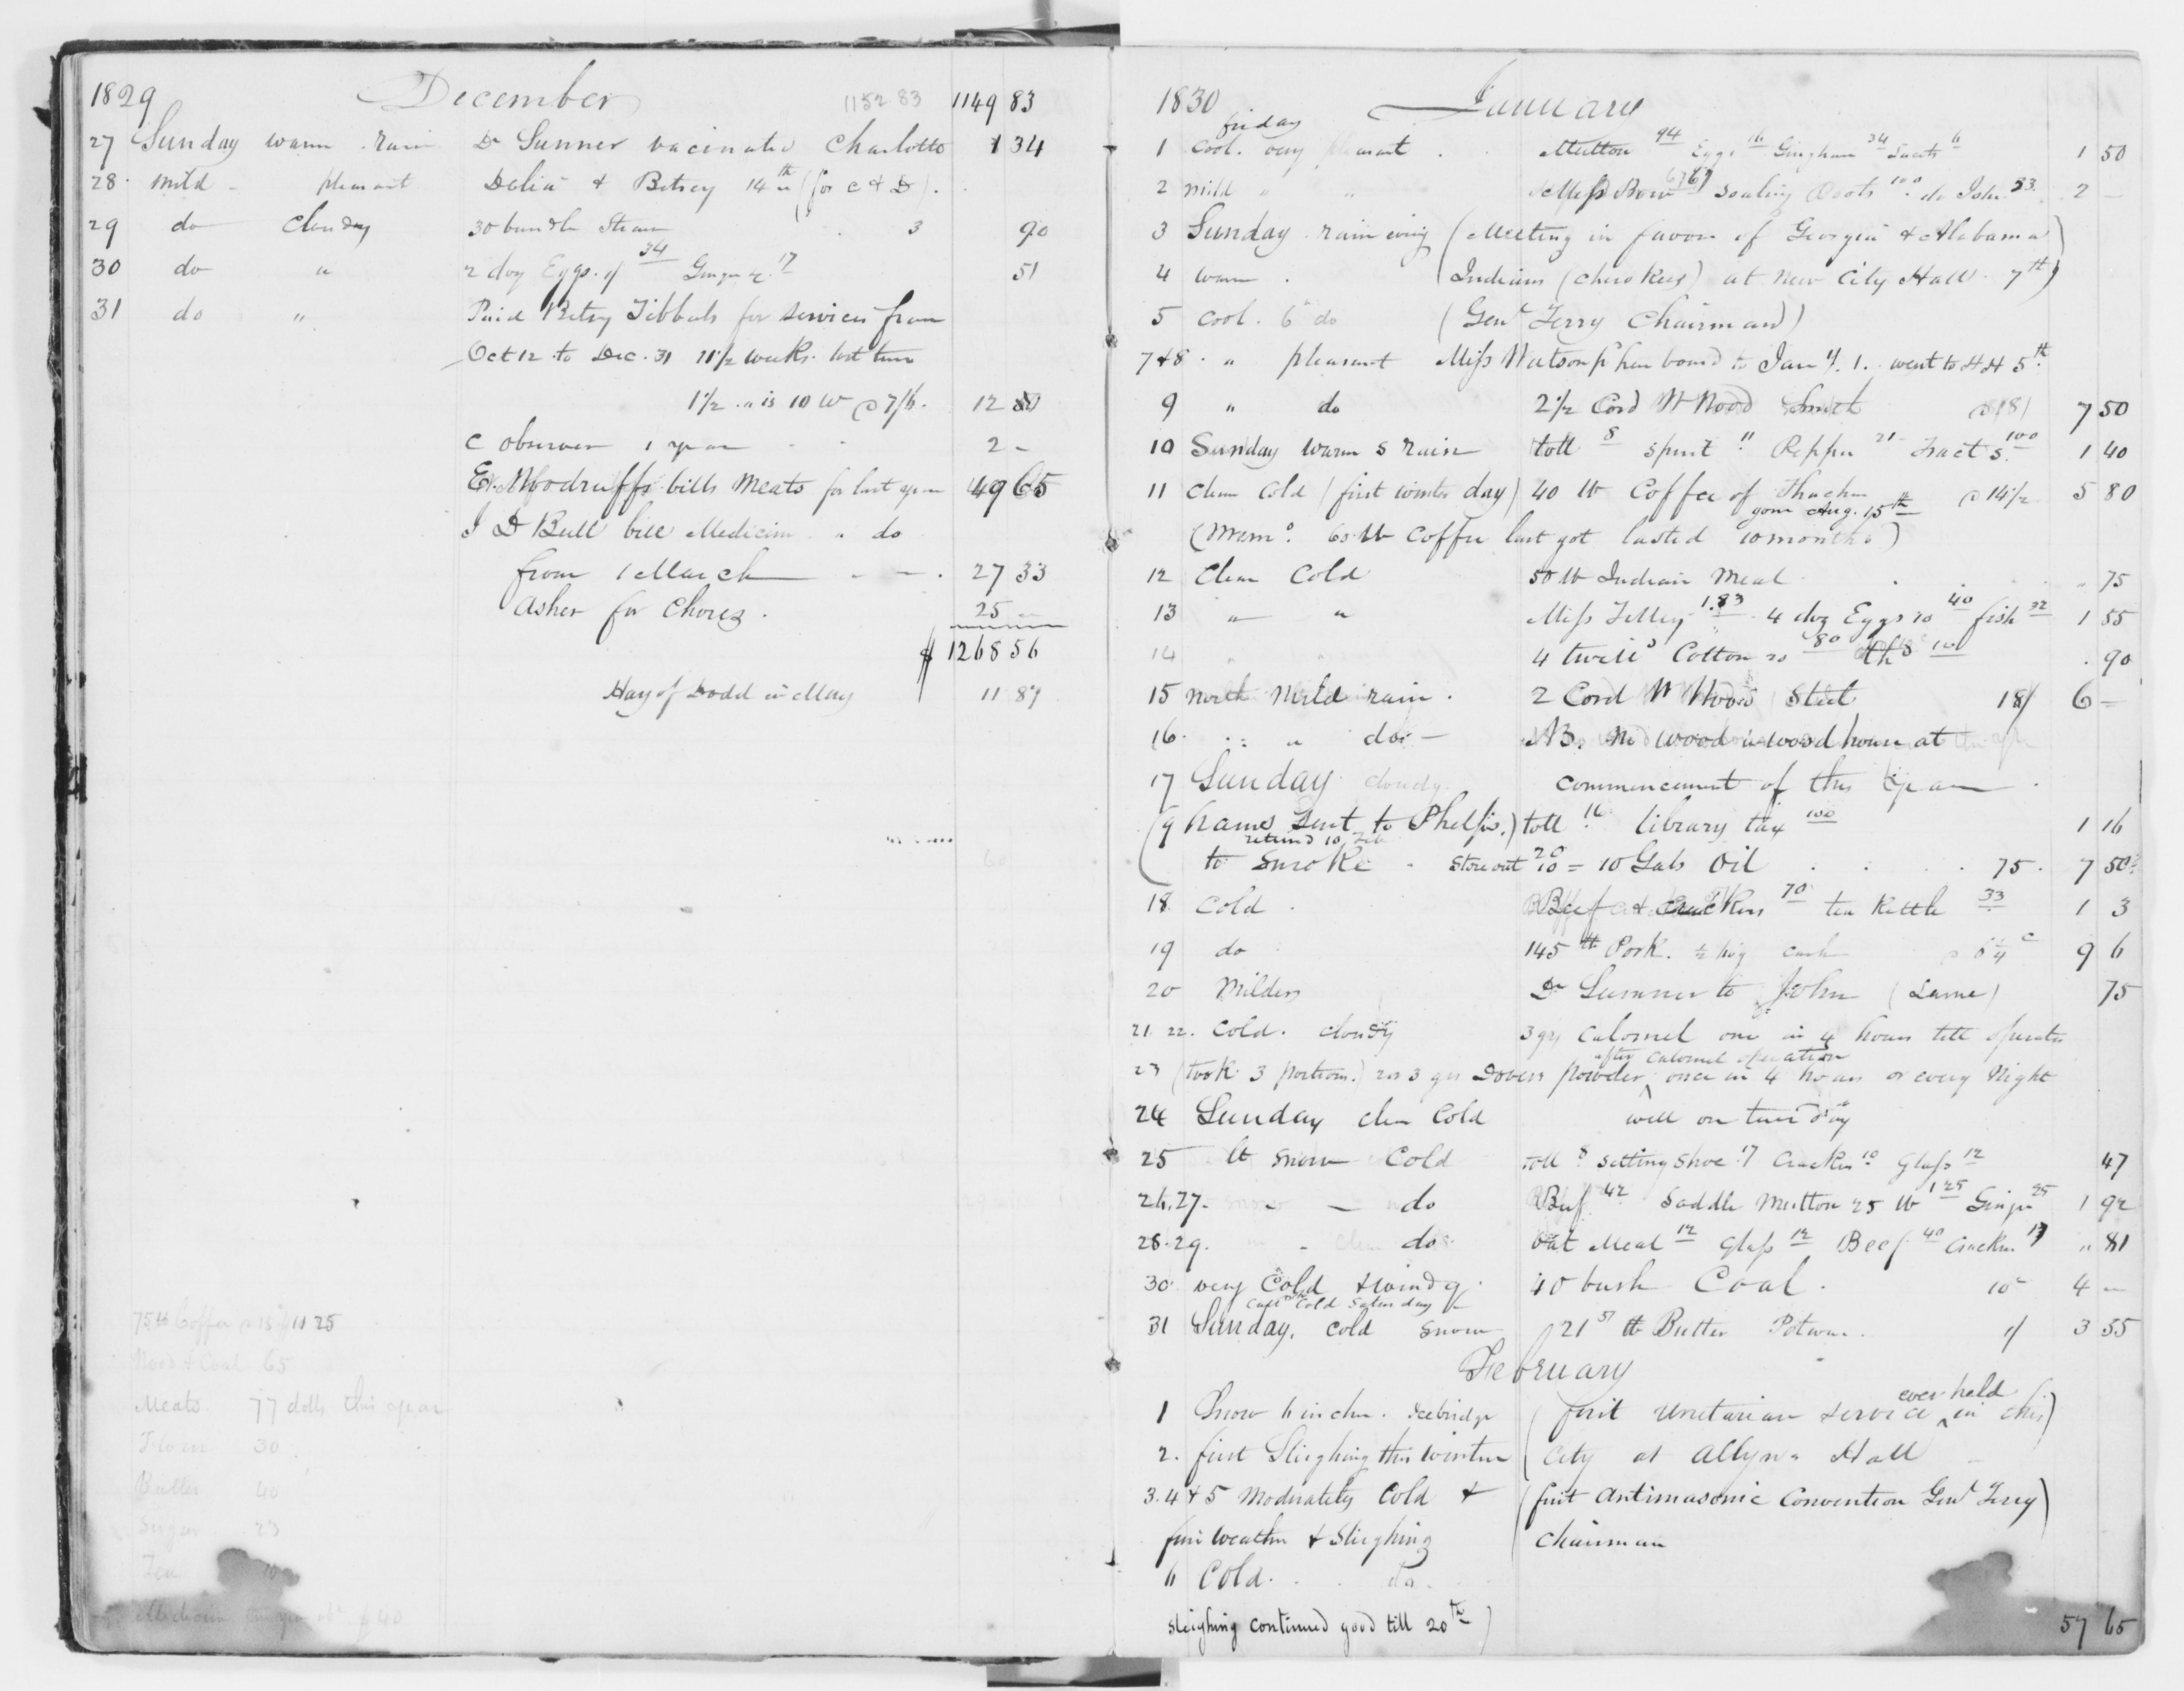 1829 December 1152.83 1149 83
27 Sunday warm rain Dr Sumner vacinated Charlotte 1 34
28. mild - pleasant Delia & Betsey 14th (for C & D).
29 do Cloudy 30 bundle Straw 3 90
30 do " 2 doz Eggs 1/ 34 Ginger 17 51
31 do " Paid Betsy Tibbals for services from
Oct 12 to Dec. 31 11 1/2 weeks. lost time
1 1/2 .. is 10 W @ 7/6. 12 50
C observer 1 year 2 -
E. Woodruffs bills Meats for last year 49 65
I D Bull bill Medicine " do
from 1 March 27 33
Asher for Chores. 25 -
$ 1268 56
Hay of Dodd in May 11 87
60
75 lb Coffee 15 11 25
Wood & Coal 65
Meats 77 dolls this year
Flour 30
Butter 40
Sugar 23
Tea
Medicine this year $40
1830 January
friday
1 Cool. very pleasant Mutton 94 Eggs 16 Gingham 34 6 1 50
2 mild " " Miss Bow 67 soaling Boots 100 do John 33. 2 -
3 Sunday rain eving (Meeting in favour of Georgia & Alabama
4 warm . Indians (Cherokees) at New City Hall 7th)
5 Cool. 6 do (Genl Terry Chairman)
7 & 8 . " pleasant Miss Watson pr her board to Jany. 1. went to HH 5th
9 " do 2 1/2 Cord W Wood Smith @ 18/ 7 50
10 Sunday warm S rain toll 8 spirit 11 Pepper 21 Tracts. 100 1 40
11 Clear Cold (first winter day) 40 lb Coffee of Thacher @ 14 1/2 5 80
gone Aug. 15th
(Memo. 60 lb Coffee last got lasted 10 months)
12 Clear Cold 50 lb Indian Meal " 75
13 " " Miss Tilley 1.83 4 doz Eggs 10 40 fish 32 1 55
14 " " 4 twilld Cotton 20 80 100 . 90
15 north Mild rain. 2 Cord W Wood Steel 18/ 6 -
16. " " do - NB. No wood in wood house at
17 Sunday cloudy commencement of this year
(9 hams sent to Phelps.) toll 16 library tax 100 1 16
returnd 10 Feb
to smoke . Stone out 20 = 10 Gals Oil . . . 75. 7 50
18 Cold . Beef & Crackers 70 tea Kettle 33 1 3
19 do 145 lb Pork. 1/2 hog cash @ 6 1/4 c 9 6
20 Milder Dr Sumner to John (Lame) 75
21. 22. Cold. cloudy 3 grs Calomel one in 4 hours till operates
after Calomel operation
23 (took 3 portions.) 2 or 3 grs Dovers powder, once in 4 hours or every Night
24 Sunday clear Cold well on tues day
25 lt snow Cold toll 8 setting shoe 17 Crackers 10 Glass 12 47
26.27. snow - do Beef 42 Saddle Mutton 25 lb 1 25 Ginger 25 1 92
28.29. " . clear do Oat Meal 12 Glass 12 Beef 40 Crackers 17 " 81
30. very Cold & windy. 40 bush Coal. 10 4 -
Calld Cold Saturday
31 Sunday. Cold snow 21 lb Butter Potwin. 1/ 3 55
February
1 Snow 6 inches. Icebridge (first Unitarian service ever held in this)
2. first Sleighing this winter (City at Allyns Hall
3.4 & 5 Moderately Cold & (first Antimasonic Convention Genl Terry)
fine weather & Sleighing Chairman
6 Cold. . . do.
sleighing continued good till 20th)
57 65